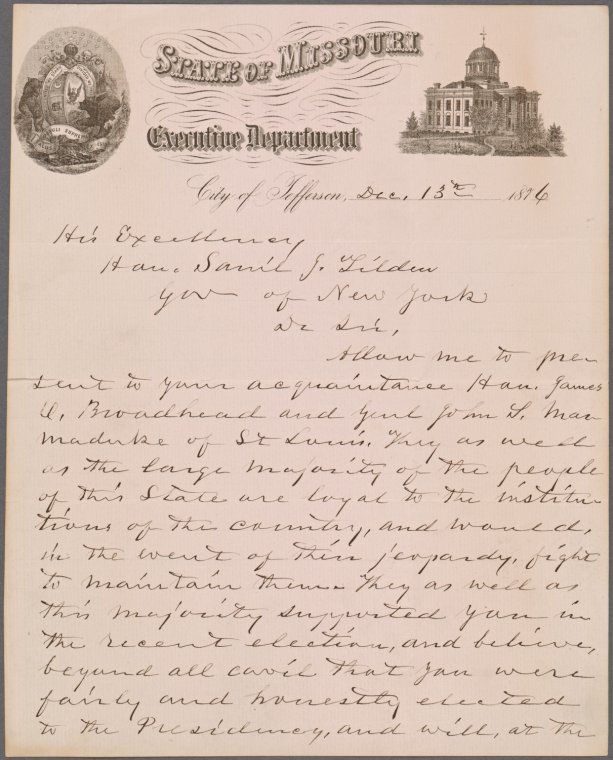 STATE OF MISSOURI
Executive Department
City of Jefferson, Dec. 13th 1876
His Excellency
Hon. Saml J. Tilden
Gov of New York
Dr Sir,
Allow me to pre
sent to your acquaintance Hon. James
O. Broadhead and Genl John S. Mar
maduke of St Louis. They as well
as the large majority of the people
of this State are loyal to the institu
tions of the country, and would,
in the event of their jeopardy, fight
to maintain them. They as well as
this majority supported you in
the recent election, and believe,
beyond all cavil that you were
fairly and honestly elected
to the Presidency, and will, at the